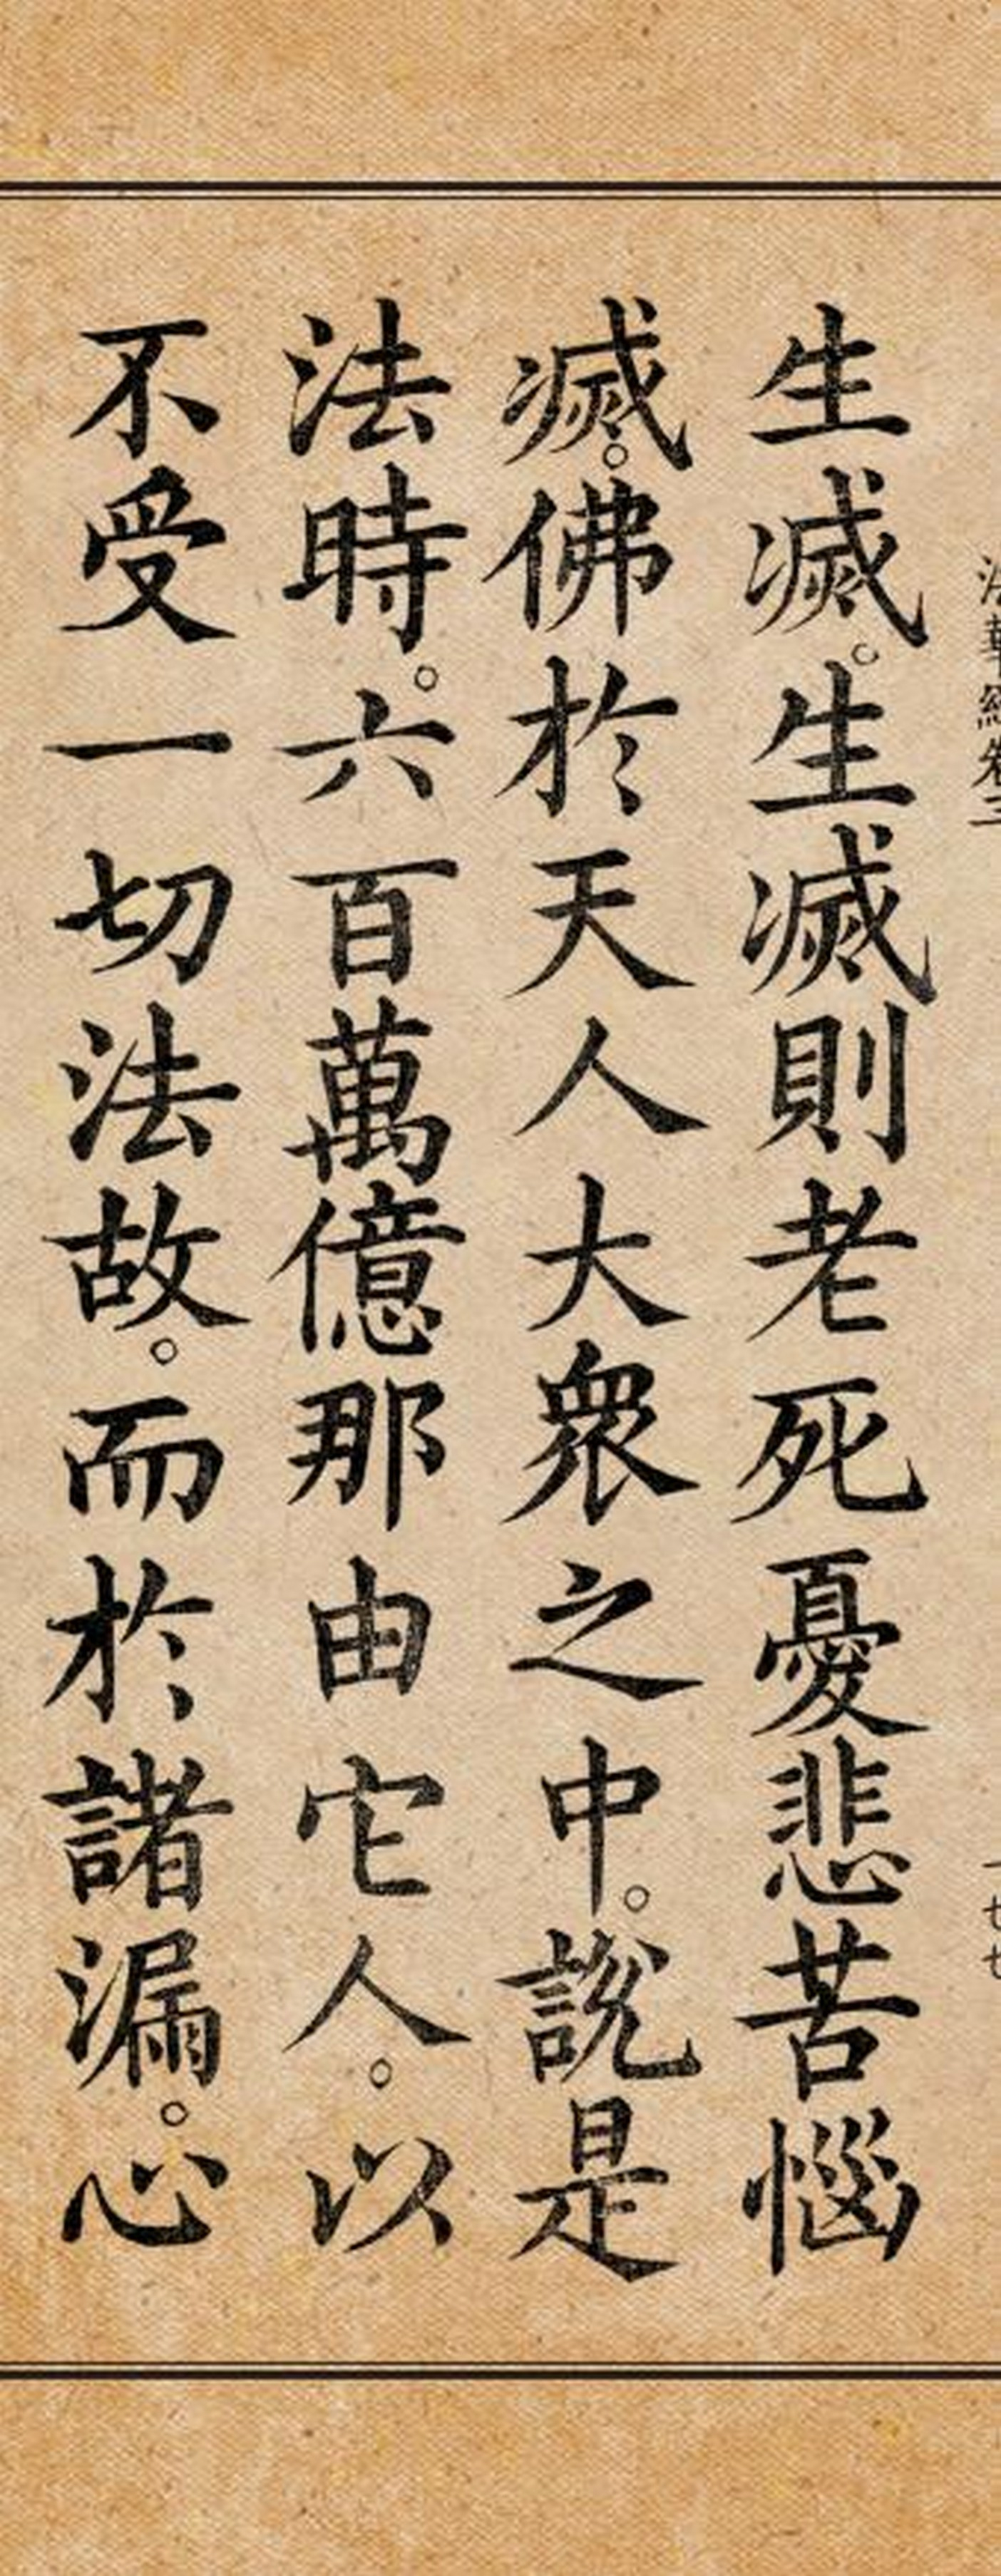 法華經卷三
一七七
生滅。生滅則老死憂悲苦惱
滅。佛於天人大衆之中。說是
法時。六百萬億那由它人。以
不受一切法故。而於諸漏。心